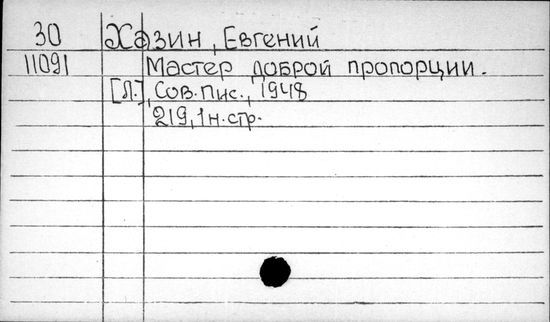 30 Хазин, Евгений
11091 Мастер доброй пропорции.
[Л.], Сов. пис., 1948
219, 1 н. стр.